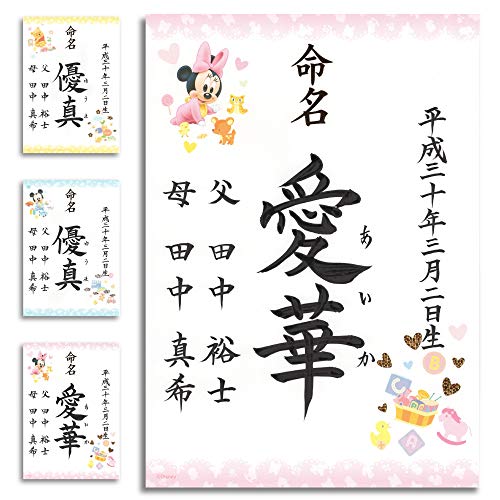 命名
平成三十年三月二日生
優真
ゆうま
父 田中 裕士
母 田中 真希
命名
平成三十年三月二日生
優真
ゆうま
父 田中 裕士
母 田中 真希
命名
平成三十年三月二日生
愛華
あいか
父 田中 裕士
母 田中 真希
平成三十年三月二日生
命名
愛華
あいか
父 田中 裕士
母 田中 真希
B
C
A
©Disney